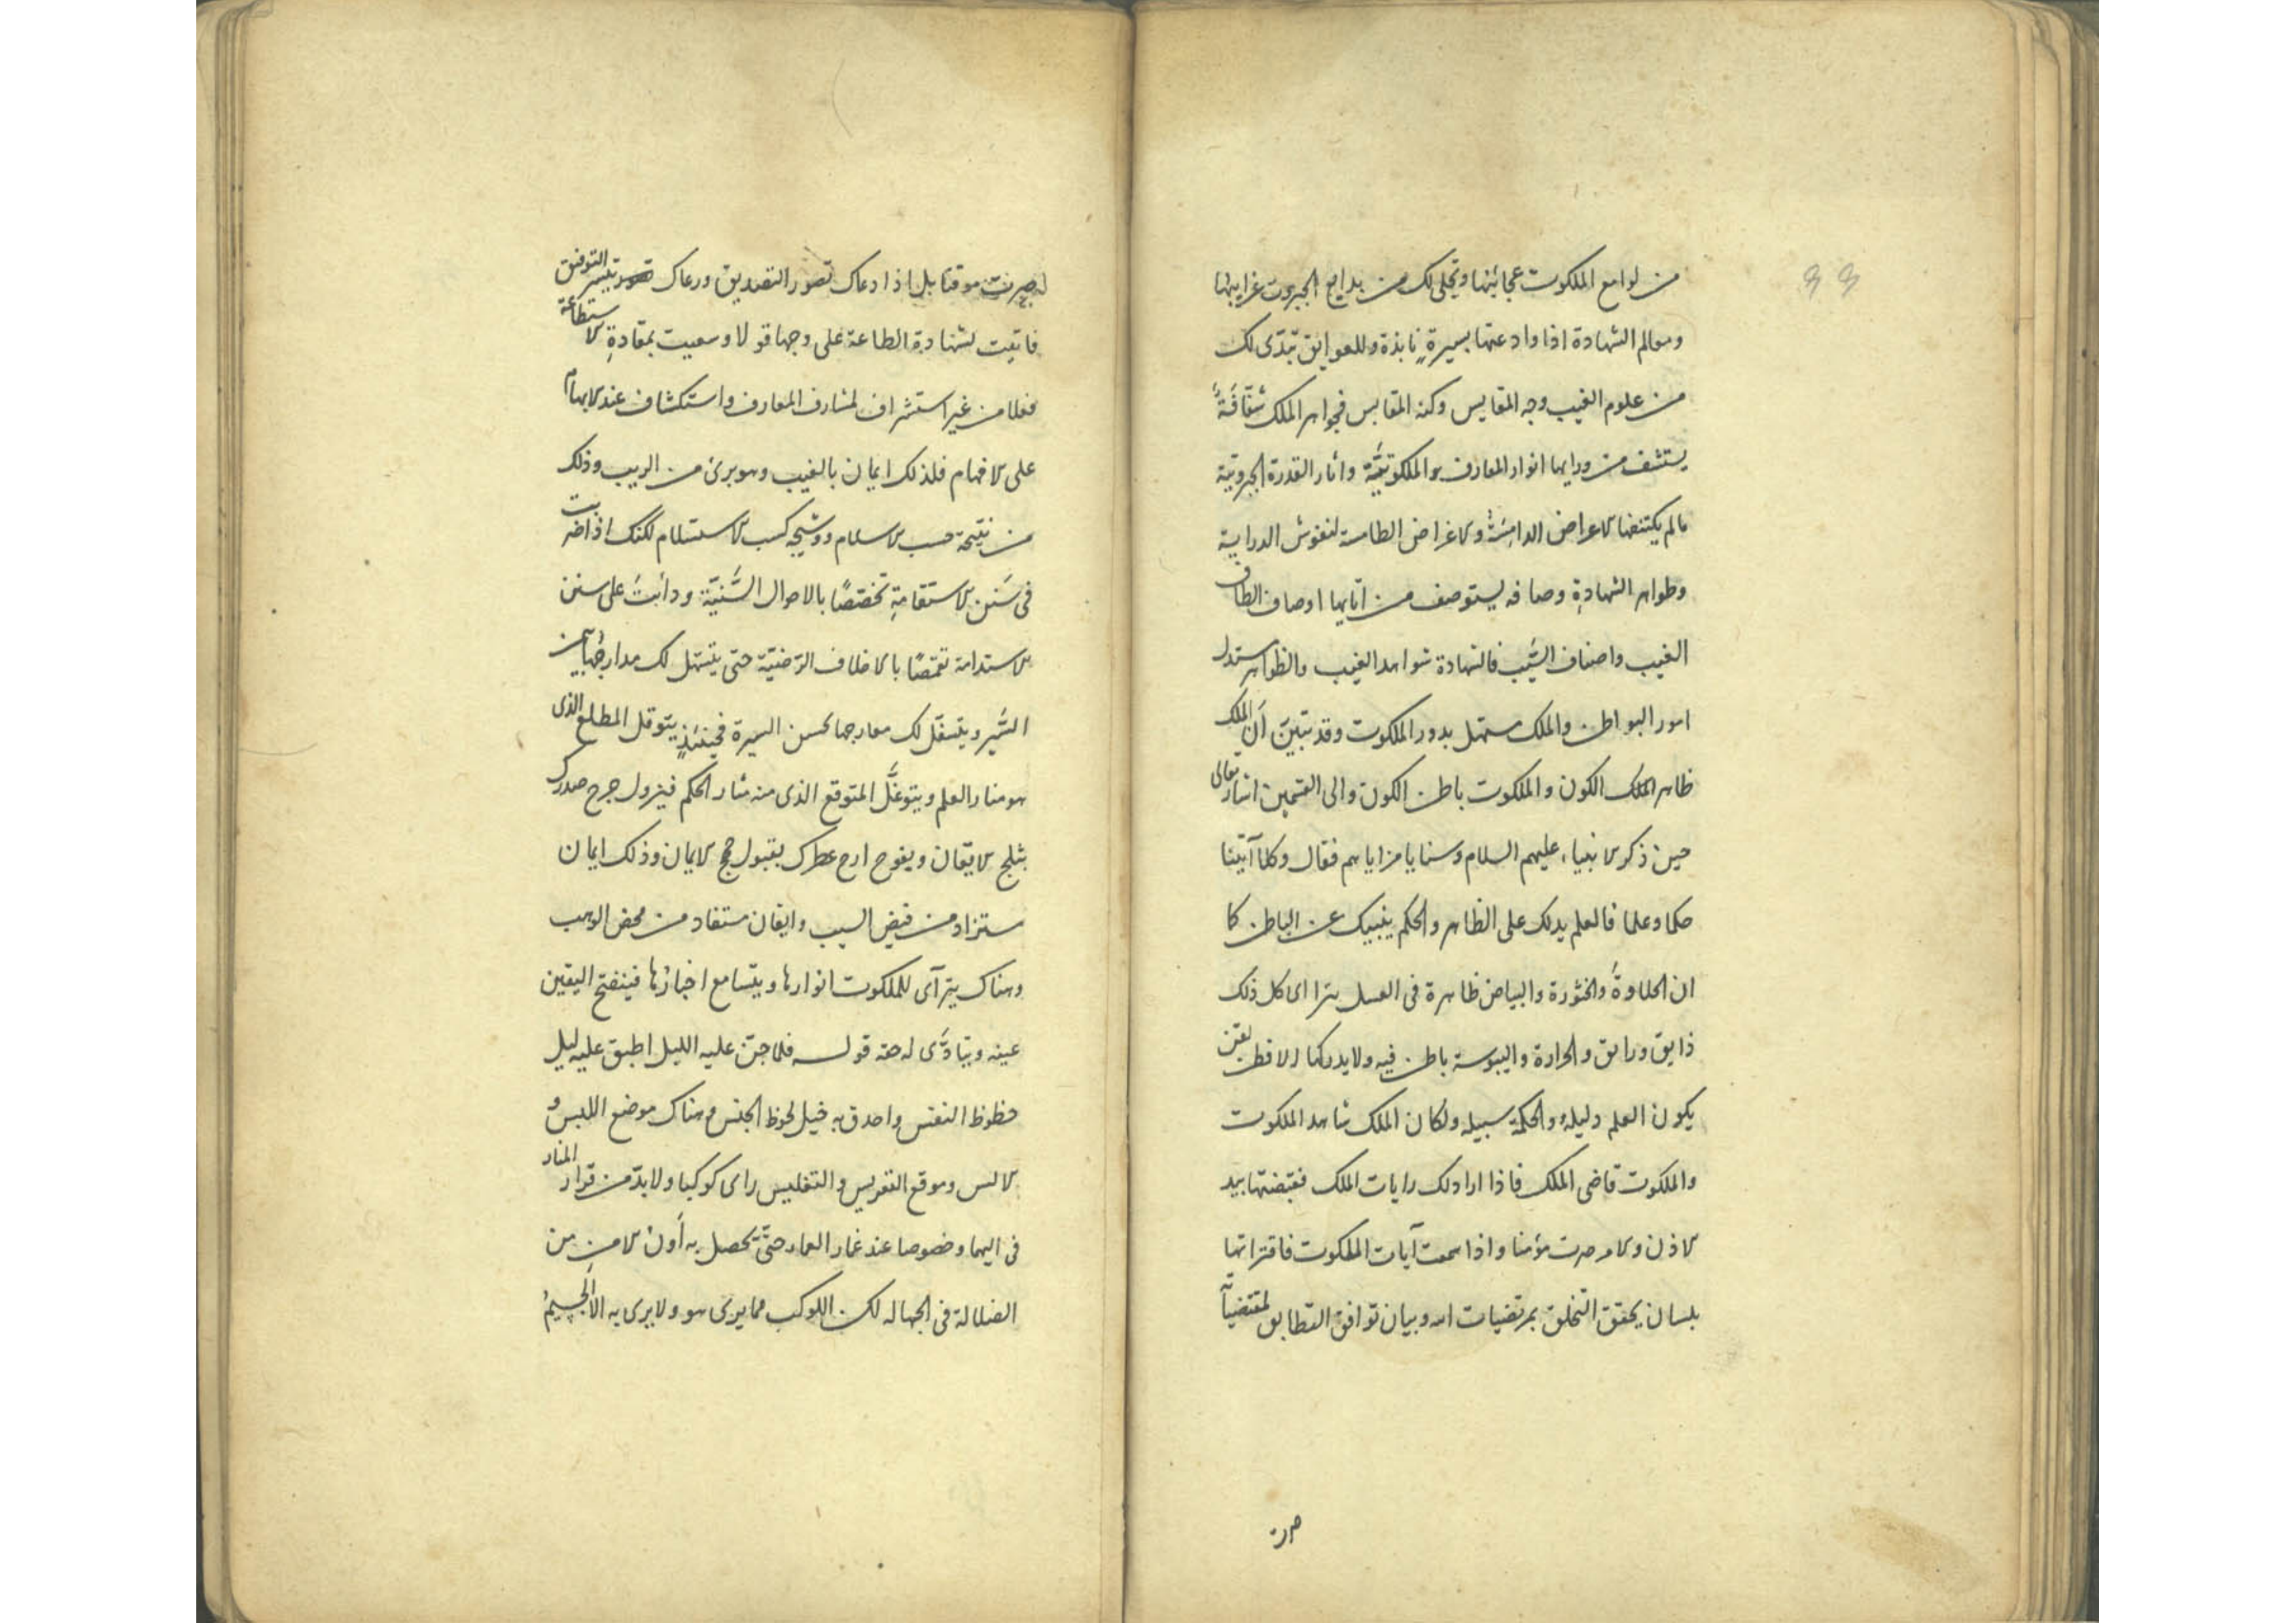 ٩٩
من لوامع الملكوت عجائبها وتجلى لك من بدايع الجبروت غرايبها
ومعالم الشهادة اذا وادعتها بسيرة نابذة وللعوايق تبدّى لك
من علوم الغيب وجه المقايس وكنه المقابس فجواهر الملك شفّافة
يستشف من ورايها انوار المعارف الملكوتيّة واثار القدرة الجبروتية
مالم يكتنفها الاعراض الدامسة والاغراض الطامسة لنفوش الدراية
وظواهر الشهادة وصافه يستوصف من اتايها اوصاف الطاف
الغيب واصناف السّيب فالشهادة شواهد الغيب والظواهر ستدل
امور البواطن والملك مستهل بدور الملكوت وقد تبيّن أن الملك
ظاهر الكون والملكوت باطن الكون والى القسمين اشار تعالى
حين ذكر الانبياء عليهم السلام وسنايا مزاياهم فقال وكلا آتينا
حكما وعلما فالعلم يدلك على الظاهر والحكم ينبيك عن الباطن كما
ان الحلاوة والخثورة والبياض ظاهرة فى العسل يترااى كل ذلك
ذايق ورامق والحرارة واليبوسة باطن فيه ولا يدركها الا فطن لقن
يكون العلم دليله والحكمة سبيله ولكان الملك شاهد الملكوت
والملكوت قاضى الملك فاذا ارادلك رايات الملك فقبضتها بيد
الاذن والامر صرت مؤمنا واذا سمعت آيات الملكوت فاقتراتها
بلسان يحقق التخلق بمرتضيات الله وبيان توافق التطابق لمقتضياته
صرت
صرت موقنا بل اذا دعاك تصور التصديق ورعاك تيسير التوفيق
فاتيت لشهادة الطاعة على وجهها قولا وسعيت بمقادة الاستطاعة
فعلا من غير استشراف لمشارف المعارف واستكشاف عند الابهام
على الافهام فلذلك ايمان بالغيب وهو برئ من الريب وذلك
من نتيجة حسب الاسلام ووشيجه كسب الاستسلام لكنك اذا ضربت
فى سَنن الاستقامة تخصّصًا بالاحوال السَّنيّة ودأبت على سنن
الاستدامة تقمّصًا بالاخلاق الرّضيّة حتى يتسهّل لك مدارجها
السَّير ويتسقّل لك معارجها بحسن السيرة فحينئذٍ يتوقل المطلع الذى
هو منار العلم ويتوغّل المتوقع الذى منه مثار الحكم فيزول حرج صدرك
بثلج الايقان ويفوح ارج عطرك بقبول حجج الايمان وذلك ايمان
مستزاد من فيض السيب وايقان مستفاد من محض الوهب
وهناك يتراآى للملكوت انوارها ويتسامع اخبارُها فينفتح اليقين
عينه ويتادّى له حقه قوله فلما جنّ عليه الليل اطبق عليه ليل
حظوظ النفس واحدق به خيل لحوظ الجنس وهناك موضع اللبس و
الالس وموقع التعريس والتغليس راى كوكبا ولا بدّ من قرار المنار
فى اليهما وخصوصا عند غمار العمار حتى يحصل به أون الامن من
الضلالة فى الجهاله لكن الكوكب مما يرى هو ولا يرى به الا الجسيمُ